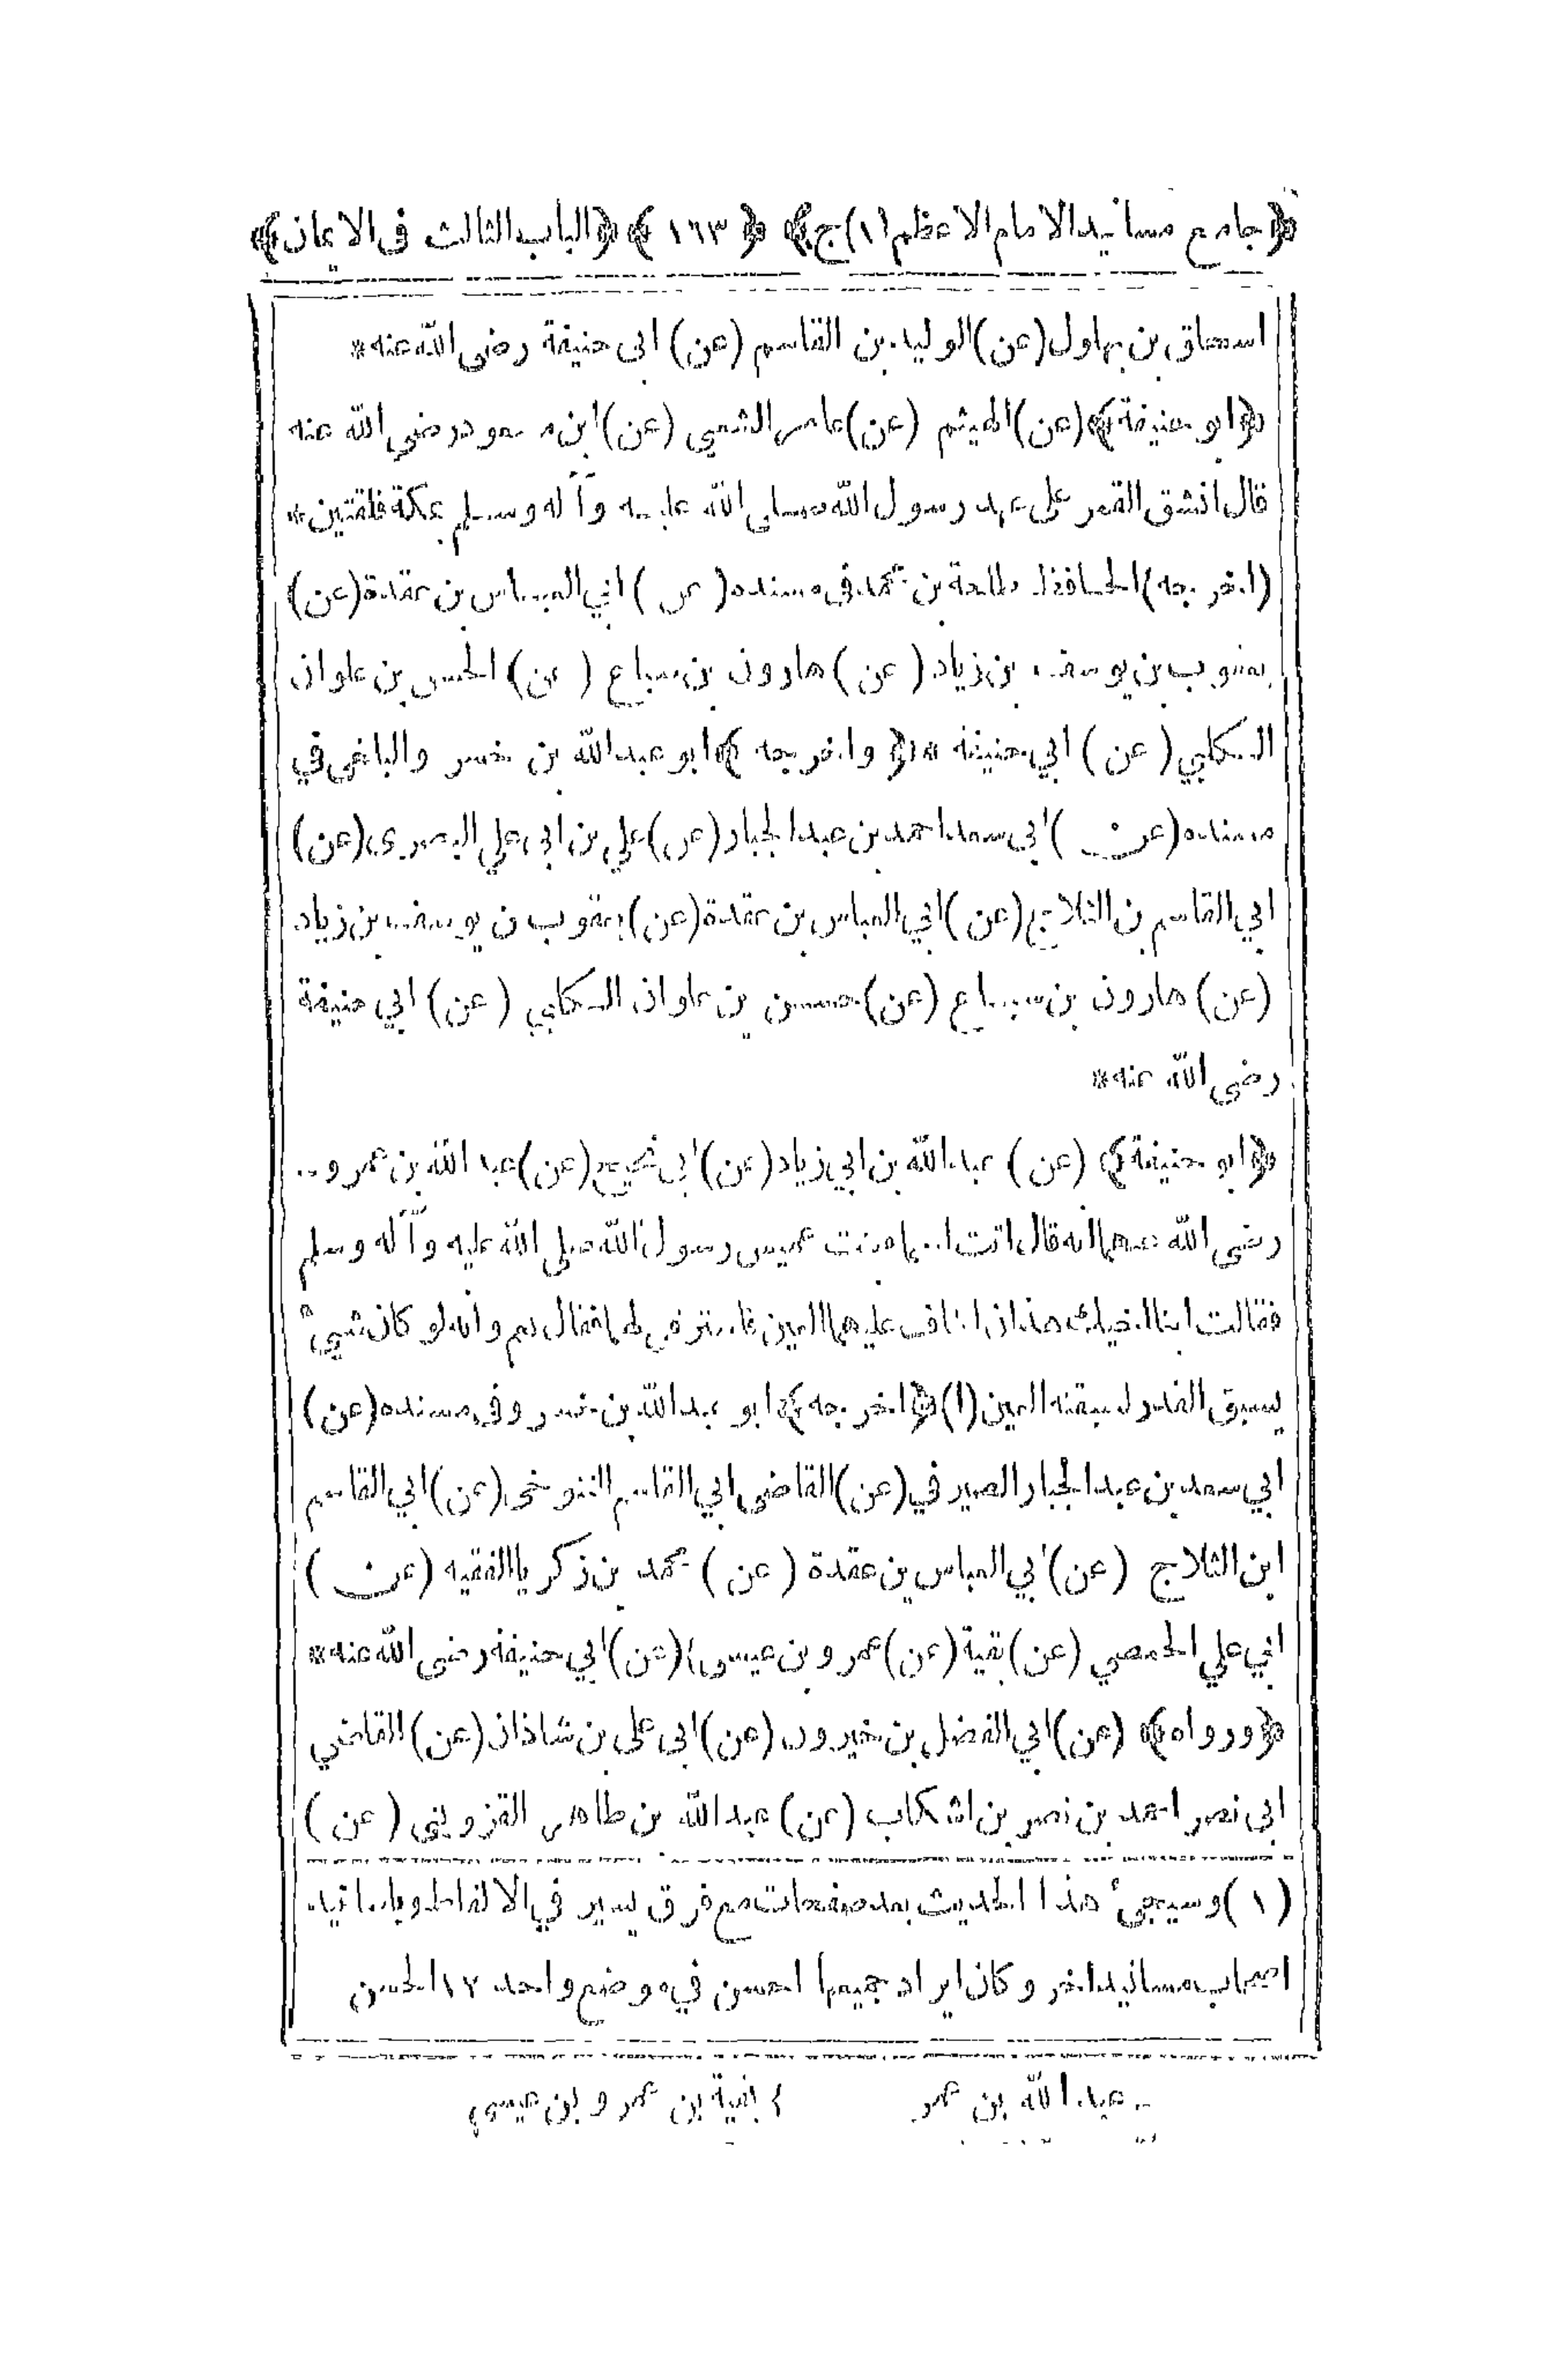 ﴿جامع مسانيد الامام الاعظم (١)ج﴾ ﴿ ١٦٣ ﴾ ﴿الباب الثالث فى الايمان﴾
اسحاق بن بهلول (عن) الوليد بن القاسم (عن) ابى حنيفة رضى الله عنه*
﴿ابو حنيفة﴾ (عن) الهيثم (عن) عامر الشعبي (عن) ابن مسعود رضى الله عنه
قال انشق القمر على عهد رسول الله صلى الله عليه وآله وسلم بمكة فلقتين*
(اخرجه) الحافظ طلحة بن محمد فى مسنده (عن) ابي العباس بن عقدة (عن)
يعقوب بن يوسف بن زياد (عن) هارون بن سباع (عن) الحسن بن علوان
الكلبي (عن) ابي حنيفة *﴿واخرجه﴾ ابو عبد الله بن خسرو البلخى في
مسنده (عن) ابى سعد احمد بن عبد الجبار (عن) علي بن ابى علي البصرى (عن)
ابي القاسم بن الثلاج (عن) ابي العباس بن عقدة (عن) يعقوب بن يوسف بن زياد
(عن) هارون بن سباع (عن) حسن بن علوان الكلبي (عن) ابي حنيفة
رضى الله عنه*
﴿ابو حنيفة﴾ (عن) عبد الله بن ابي زياد (عن) ابى نجيح (عن) عبد الله بن عمرو
رضى الله عنهما انه قال اتت اسماء بنت عميس رسول الله صلى الله عليه وآله وسلم
فقالت ابنا اخيك هذان اخاف عليهما العين فاسترقى لهما فقال نعم وانه لو كان شيئ
يسبق القدر لسبقته العين (١) ﴿اخرجه﴾ ابو عبد الله بن خسرو في مسنده (عن)
ابي سعد بن عبد الجبار الصيرفي (عن) القاضى ابي القاسم التنوخى (عن) ابي القاسم
ابن الثلاج (عن) ابي العباس بن عقدة (عن) محمد بن زكريا الفقيه (عن)
ابي علي الحمصي (عن) بقية (عن) عمرو بن عيسى (عن) ابي حنيفة رضى الله عنه*
﴿ورواه﴾ (عن) ابي الفضل بن خيرون (عن) ابى على بن شاذان (عن) القاضي
ابى نصر احمد بن نصر بن اشكاب (عن) عبد الله بن طاهر القزويني (عن)
(١) وسيجئ هذا الحديث بعد صفحات مع فرق يسير في الالفاظ وباسانيد
اصحاب مسانيد اخر وكان ايراد جميعها احسن في موضع واحد ١٢ الحسن
عبد الله بن عمر
بقية بن عمرو بن عيسى